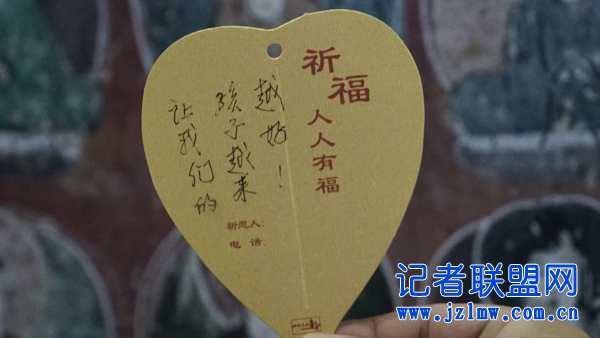 祈福
人人有福
让我们的
孩子越来
越好！
祈愿人：
电 话：
记者联盟网
www.jzlmw.com.cn